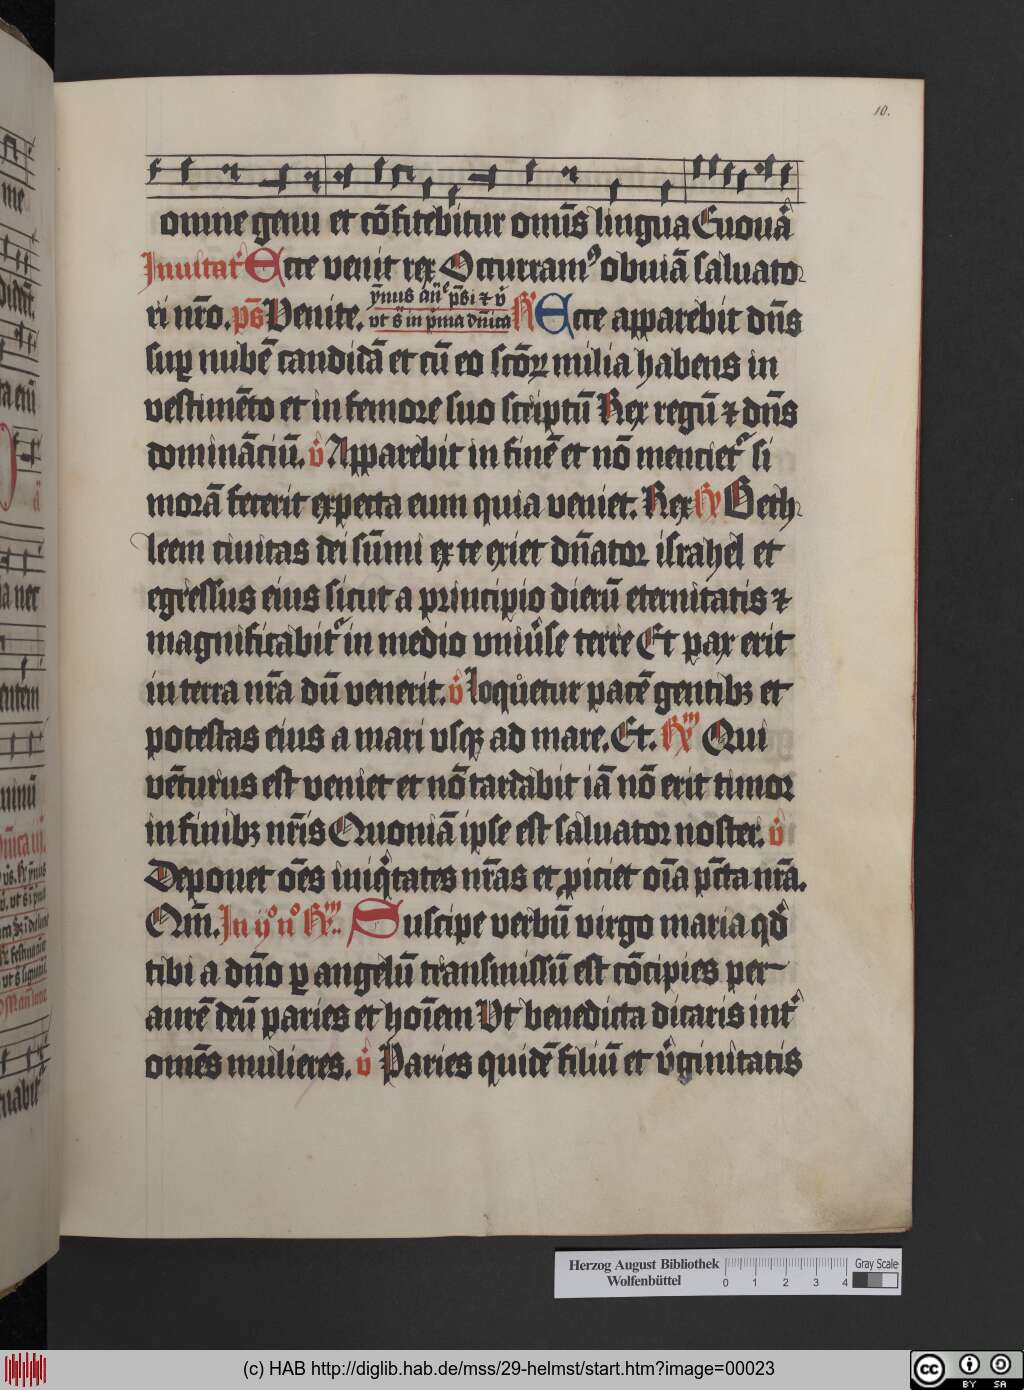 10.
omne genu et cōfitebitur omīs lingua Euouā
Inuitat᷑ Ecce venit rex Occurramꝰ obuiā saluato-
ri nr̄o. ps̄ Venite. ẏmus añ ps̄i ⁊ v̊
vt s̄ in p̄ma dn̄ica R᷑ Ecce apparebit dn̄s
suꝑ nubē candidā et cū eo scōꝝ milia habens in
vestimēto et in femore suo scriptū Rex regū ⁊ dn̄s
dominācīū. v̊ Apparebit in finē et nō mentiet᷑ si
morā fecerit expecta eum quia veniet. Rex R᷑ Beth-
leem ciuitas dei sūmi ex te exiet dn̄ator israhel et
egressus eius sicut a principio dierū eternitatis ⁊
magnificabit᷑ in medio vniu᷑se terre Et pax erit
in terra nr̄a dū venerit. v̊ Loqůetur pacē gentibꝫ et
potestas eius a mari vsqꝫ ad mare. Et. R᷑ Qui
vēturus est veniet et nō tardabit iā nō erit timor
in finibꝫ nr̄is Quoniā ipse est saluator noster. v̊
Deponet oēs iniqͥtates nr̄as et ꝓiciet oīa pc̄ta nr̄a.
Qm̄. In ijº nº R᷑ Suscipe verbū virgo maria qd̄
tibi a dn̄o ꝑ angelū transmissū est cōcipies per
aurē deū paries et hoīem Vt benedicta dicaris int᷑
omēs mulieres. v̊ Paries quidē filiū et v᷑ginitatis
Herzog August Bibliothek
Wolfenbüttel
0 1 2 3 4
Gray Scale
(c) HAB http://diglib.hab.de/mss/29-helmst/start.htm?image=00023
cc BY SA